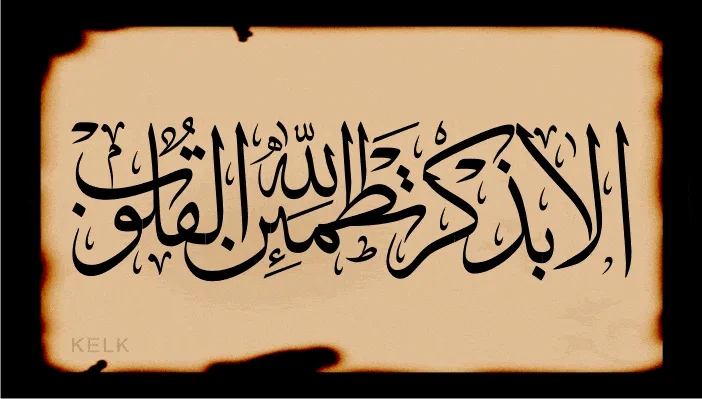 الا بذكر الله تطمئن القلوب
KELK